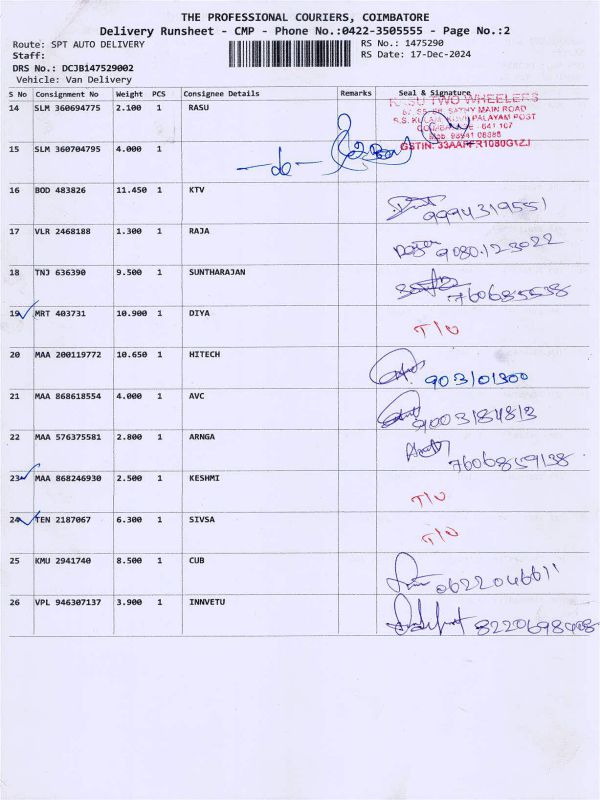 THE PROFESSIONAL COURIERS, COIMBATORE
Delivery Runsheet - CMP - Phone No.:0422-3505555 - Page No.:2
Route: SPT AUTO DELIVERY RS No.: 1475290
Staff: RS Date: 17-Dec-2024
DRS No.: DCJB147529002
Vehicle: Van Delivery
S No Consignment No Weight PCS Consignee Details Remarks Seal & Signature
14 SLM 360694775 2.100 1 RASU
RASU TWO WHEELERS
SATHY MAIN ROAD
PALAYAM POST
641 107
GSTIN: 33AAFFR1080G1ZJ
15 SLM 360704795 4.000 1 -do-
16 BOD 483826 11.450 1 KTV 9994319551
17 VLR 2468188 1.300 1 RAJA 9080123022
18 TNJ 636390 9.500 1 SUNTHARAJAN
19 MRT 403731 10.900 1 DIYA T/U
20 MAA 200119772 10.650 1 HITECH
21 MAA 868618554 4.000 1 AVC
22 MAA 576375581 2.800 1 ARNGA
23 MAA 868246930 2.500 1 KESHMI T/U
24 TEN 2187067 6.300 1 SIVSA T/U
25 KMU 2941740 8.500 1 CUB
26 VPL 946307137 3.900 1 INNVETU